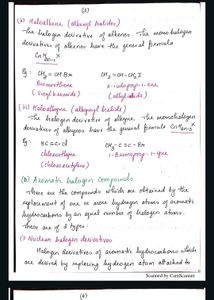 (3)
(ii) Haloalkene (alkenyl halides)
The halogen derivative of alkenes. The monohalogen
derivatives of alkenes have the general formula
CnH2n-1X
Eg: CH2 = CH Br CH2 = CH - CH2 I
Bromoethene 3-iodoprop-1-ene
(vinyl bromide) (allyl iodide)
(iii) Haloalkyne (alkynyl halide)
The halogen derivative of alkyne. The monohalogen
derivatives of alkynes have the general formula CnH2n-3X
Eg: HC≡C-Cl CH2-C≡C-Br
chloroethyne 1-Bromoprop-1-yne
(chloroacetylene)
(b) Aromatic halogen compounds
These are the compounds which are obtained by the
replacement of one or more hydrogen atoms of aromatic
hydrocarbons by an equal number of halogen atoms.
These are of 2 types:
i) Nuclear halogen derivatives
Halogen derivatives of aromatic hydrocarbons which
are derived by replacing hydrogen atom attached to
Scanned by CamScanner
(4)